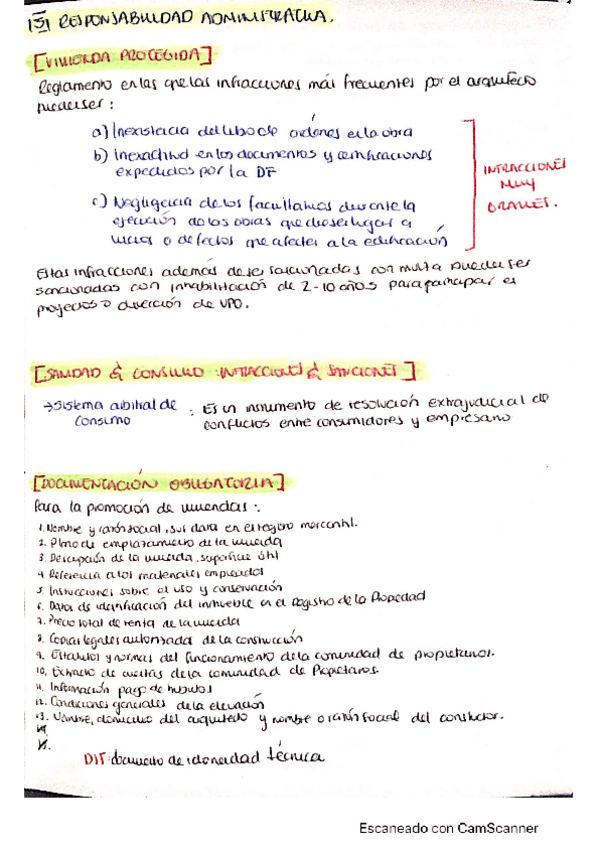 15) RESPONSABILIDAD ADMINISTRATIVA.
[VIVIENDA PROTEGIDA]
Reglamento en las que las infracciones más frecuentes por el arquitecto
pueden ser :
a) Inexistencia del libro de órdenes en la obra
b) inexactitud en los documentos y certificaciones
expedidos por la DF
c) Negligencia de los facultativos durante la
ejecución de las obras que diese lugar a
vicios o defectos que afecten a la edificación
INFRACCIONES
MUY
GRAVES.
Estas infracciones además de ser sancionadas con multa pueden ser
sancionadas con inhabilitación de 2-10 años para participar en
proyectos o dirección de VPO.
[SANIDAD & CONSUMO : INFRACCIONES & SANCIONES]
→Sistema arbitral de
consumo
: Es un instrumento de resolución extrajudicial de
conflictos entre consumidores y empresario
[DOCUMENTACIÓN OBLIGATORIA]
Para la promoción de viviendas :.
1. Nombre y razón social, sus datos en el registro mercantil.
2. Plano de emplazamiento de la vivienda
3. Descripción de la vivienda, superficie útil
4. Referencia a los materiales empleados
5. Instrucciones sobre el uso y conservación
6. Datos de identificación del inmueble en el Registro de la Propiedad
7. Precio total de renta de la vivienda
8. Copias legales autorizada de la construcción
9. Estatutos y normas del funcionamiento de la comunidad de propietarios.
10. Extracto de cuentas de la comunidad de Propietarios.
11. Información pago de tributos
12. Condiciones generales de la
13. Nombre, domicilio del arquitecto y nombre o razón social del constructor.
14.
15.
DIT: documento de idoneidad técnica
Escaneado con CamScanner